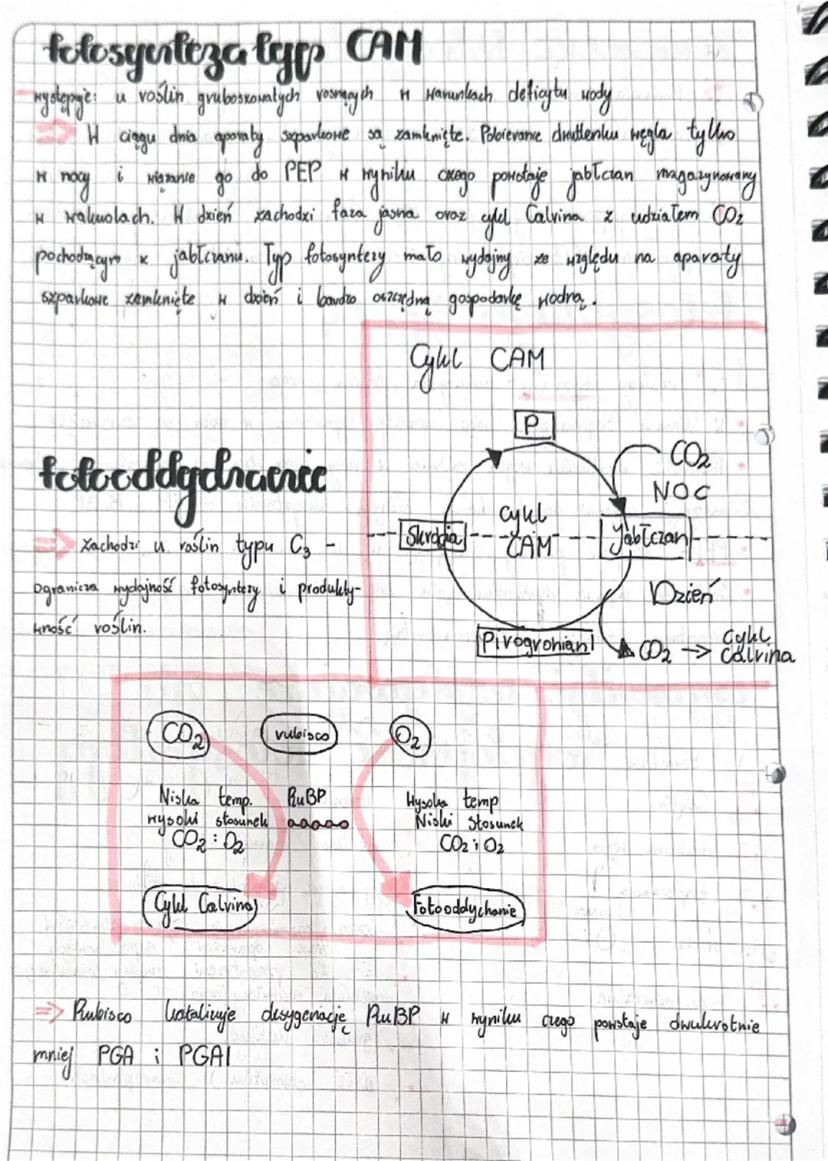 fotosynteza typ CAM
występuje: u roślin gruboszowatych rosnących w warunkach deficytu wody
⇒ W ciągu dnia aparaty szparkowe są zamknięte. Pobieranie dwutlenku węgla tylko
w nocy i wiązanie go do PEP w wyniku czego powstaje jabłczan magazynowany
w wakuolach. W dzień zachodzi faza jasna oraz cykl Calvina z udziałem CO₂
pochodzącym z jabłczanu. Typ fotosyntezy mało wydajny ze względu na aparaty
szparkowe zamknięte w dzień i bardzo oszczędną gospodarkę wodną.
Cykl CAM
P
CO₂
NOC
Skrobia
cykl
CAM
Jabłczan
Dzień
Pirogronian
CO₂ → Cykl
Calvina
fotooddychanie
⇒ Zachodzi u roślin typu C₃ -
ogranicza wydajność fotosyntezy i produkty-
wność roślin.
CO₂ rubisco O₂
Niska temp.
wysoki stosunek
CO₂ : O₂
RuBP
Wysoka temp
Niski stosunek
CO₂ : O₂
Cykl Calvina
Fotooddychanie
⇒ Rubisco katalizuje RuBP w wyniku czego powstaje dwukrotnie
mniej PGA i PGAl